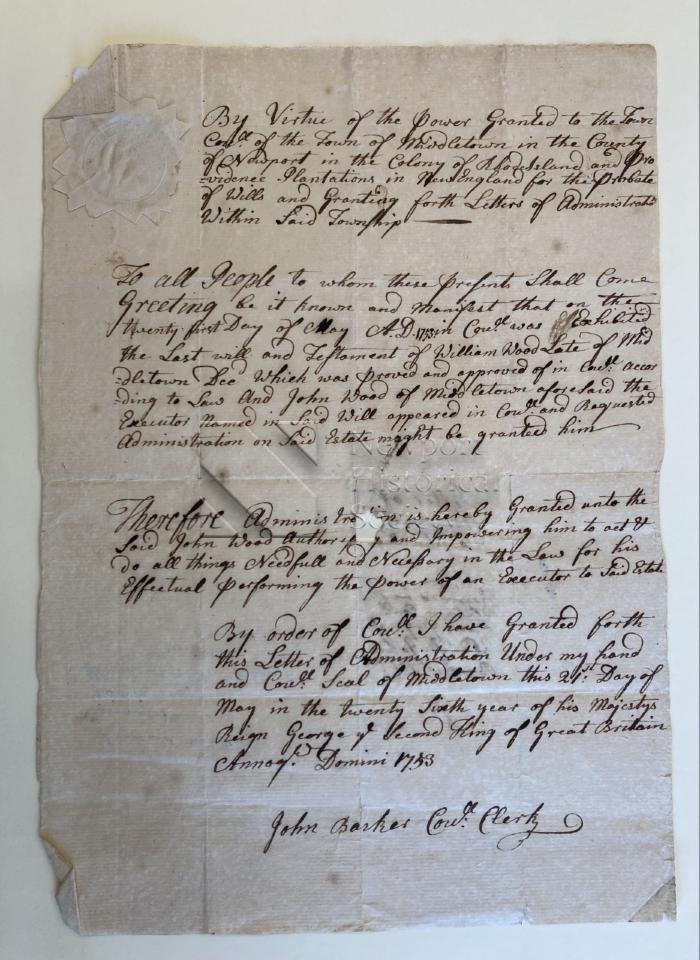 By Virtue of the Power Granted to the Town
Cowl. of the Town of Middletown in the County
of Newport in the Colony of RhodeIsland and Pro
-vidence Plantations in NewEngland for the Probate
of Wills and Granting forth Letters of Administrati
Within Said Township
To all People to whom these Presents Shall Come
Greeting be it known and Manifest that on the
twenty first Day of May A.D. 1753 in Cowl. was Exhibited
the Last will and Testament of William Wood Late of Mid
-dletown Decd. Which was Proved and approved of in Cowl. accor
-ding to Law And John Wood of Middletown aforesaid the
Executor Named in Said Will appeared in Cowl. and Requested
Administration on Said Estate might be granted him
Therefore Administration is hereby Granted unto the
Said John Wood Authority and Impowering him to act &
do all things Needfull and Necessary in the Law for his
Effectual Performing the Power of an Executor to Said Estate
By order of Cowl. I have Granted forth
this Letter of Administration Under my hand
and Cowl. Seal of Middletown this 21st. Day of
May in the twenty Sixth year of his Majestys
Reign George ye Second King of Great Britain
Annoqe. Domini 1753
John Barker Cowl. Clerk
Newport
Historical